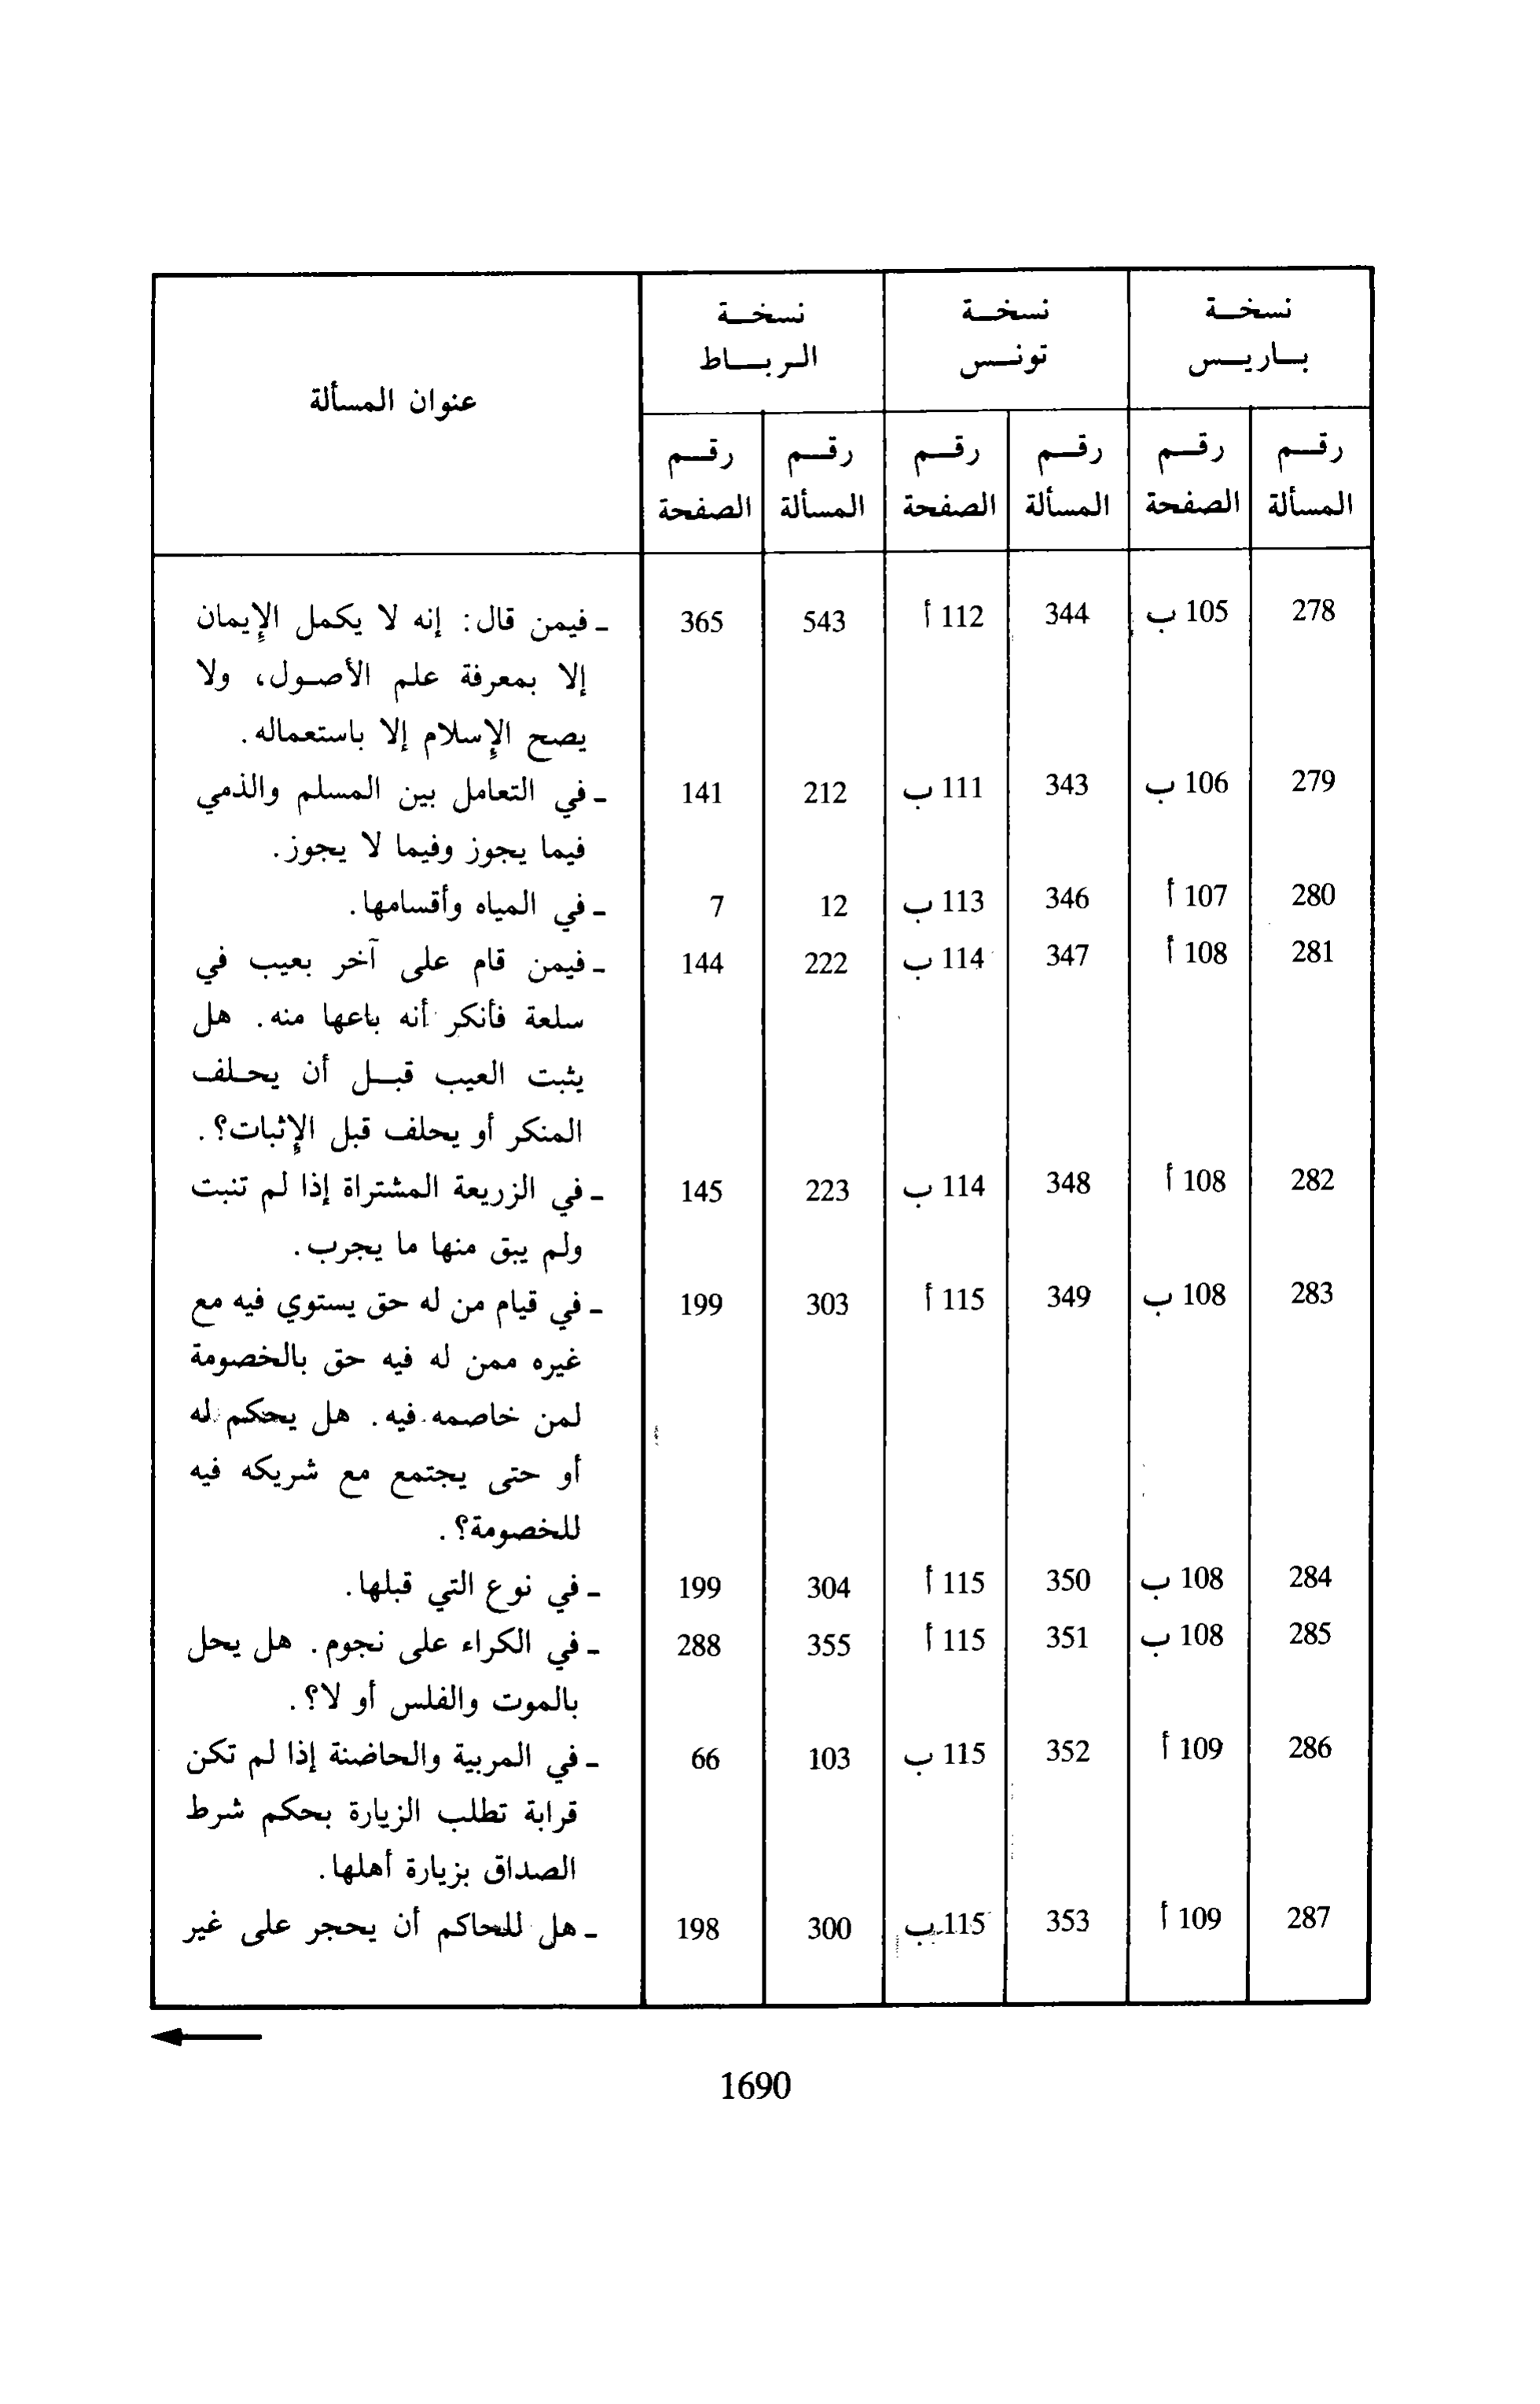 نسخة نسخة نسخة
باريس تونس الرباط عنوان المسألة
رقم رقم رقم رقم رقم رقم
المسألة الصفحة المسألة الصفحة المسألة الصفحة
278 105 ب 344 112 أ 543 365 - فيمن قال: إنه لا يكمل الإيمان
إلا بمعرفة علم الأصول، ولا
يصح الإسلام إلا باستعماله.
279 106 ب 343 111 ب 212 141 - في التعامل بين المسلم والذمي
فيما يجوز وفيما لا يجوز.
280 107 أ 346 113 ب 12 7 - في المياه وأقسامها.
281 108 أ 347 114 ب 222 144 - فيمن قام على آخر بعيب في
سلعة فأنكر أنه باعها منه. هل
يثبت العيب قبل أن يحلف
المنكر أو يحلف قبل الإثبات؟.
282 108 أ 348 114 ب 223 145 - في الزريعة المشتراة إذا لم تنبت
ولم يبق منها ما يجرب.
283 108 ب 349 115 أ 303 199 - في قيام من له حق يستوي فيه مع
غيره ممن له فيه حق بالخصومة
لمن خاصمه فيه. هل يحكم له
أو حتى يجتمع مع شريكه فيه
للخصومة؟.
284 108 ب 350 115 أ 304 199 - في نوع التي قبلها.
285 108 ب 351 115 أ 355 288 - في الكراء على نجوم. هل يحل
بالموت والفلس أو لا؟.
286 109 أ 352 115 ب 103 66 - في المربية والحاضنة إذا لم تكن
قرابة تطلب الزيارة بحكم شرط
الصداق بزيارة أهلها.
287 109 أ 353 115 ب 300 198 - هل للحاكم أن يحجر على غير
1690